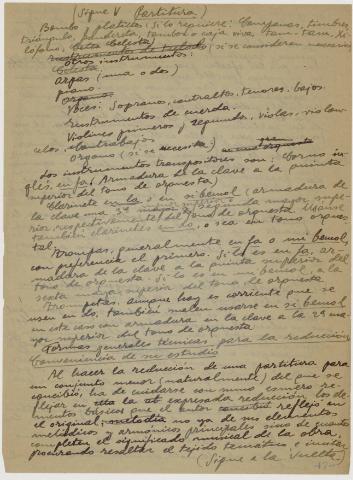 (Sigue V Partitura)
Bombo, platillos; si lo requiere: Campanas, timbres,
triángulo, pandereta, tambor o caja viva, tam-tam, Xi-
lófono, Celesta
otros instrumentos: si se consideran necesarios
Celesta
Arpas (una o dos)
piano.
organo
Voces: Soprano, contraltos, tenores, bajos.
Instrumentos de cuerda.
Violines primeros y segundos, violas, violon-
celos, contrabajos
Organo (si se necesita)
Los instrumentos transpositores son: Corno in-
glés, en fa (Armadura de la clave a la quinta
superior del tono de orquesta)
Clarinete en la o en si bemol (armadura de
la clave una 3ª
rior respectivamente del tono de orquesta
también clarinetes en do, o sea en tono orques-
tal.
Trompas, generalmente en fa o mi bemol,
con preferencia el primero. Si lo es en fa, ar-
madura de la clave a la quinta superior del
tono de orquesta. Si lo es en mi bemol, a la
sexta mayor superior del tono de orquesta
Trompetas. aunque hoy es corriente que se
usen en do, también suelen usarse en si bemol
en este caso con armadura en la clave a la 2ª ma-
yor superior del tono de orquesta
Formas generales técnicas para la reducción
Conveniencia de su estudio
Al hacer la reducción de una partitura para
un conjunto menor (naturalmente) del que se
concibió, ha de cuidarse con sumo esmero re-
flejar en la expresada reducción los ele-
mentos básicos que el autor reflejó en
el original, no ya de sus elementos
melódicos y armónicos principales sino de cuantos
completen el significado musical de la obra,
procurando resaltar el tejido temático e
(Sigue a la vuelta)